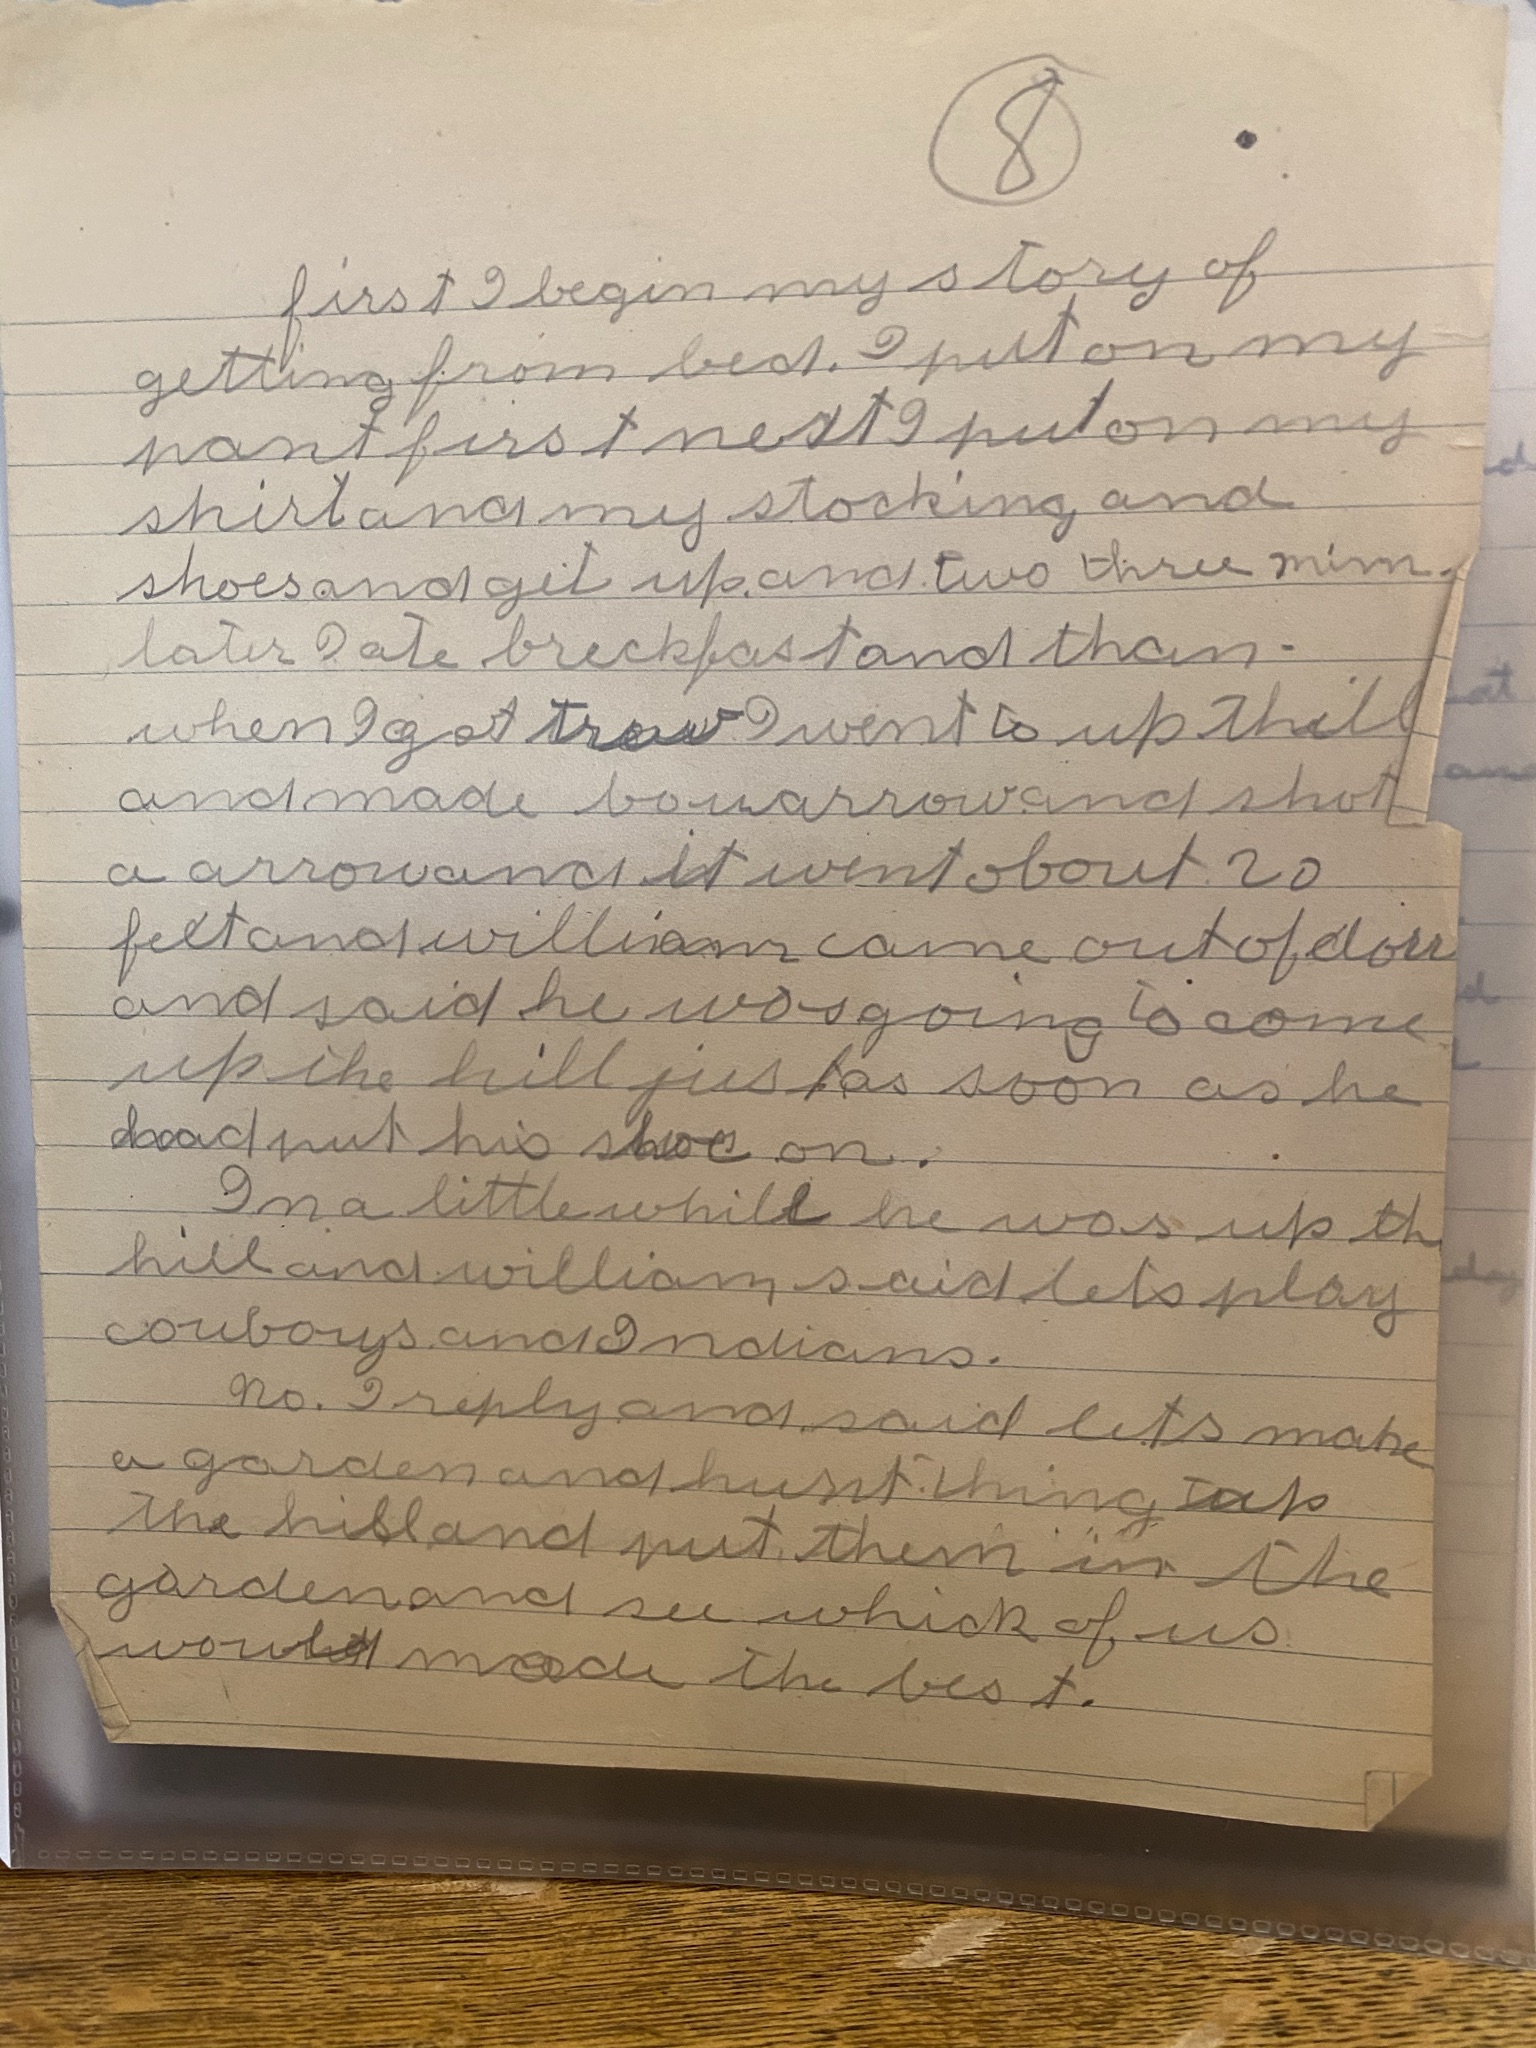 8
first I begin my story of
getting from bed. I put on my
pant first next I put on my
shirt and my stocking and
shoes and get up. and two three mim.
later I ate breckfast and than -
when I got trow I went to up thill
and made bow arrow and shot
a arrow and it went about 20
feet and william came out of dorr
and said he was going to come
up the hill just as soon as he
had put his shoe on.
In a little while he was up th
hill and william said lets play
couboys and Indians.
No. I reply and said lets make
a garden and hunt thing up
the hill and put them in the
garden and see which of us
would made the best.